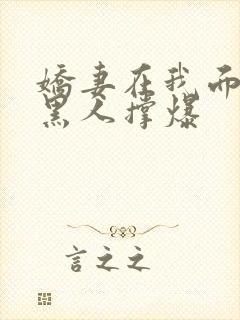 娇妻在我面
黑人撑爆
言之之